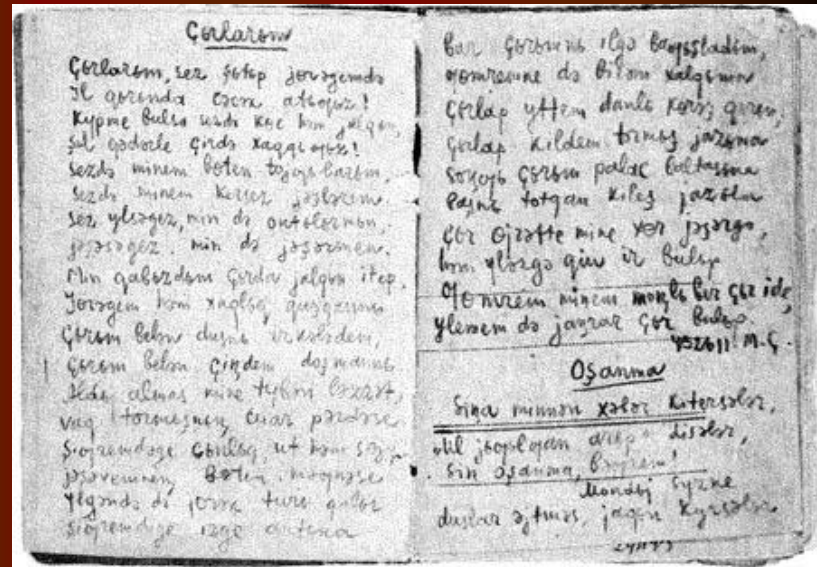 Çьrlarьm
Çьrlarьm, sez şьtьp jɵrəgemdə
Il qьrьnda cəcək atьƣьz!
Kypme bulsa sezdə kɵc həm jalqьn,
Şul qədərle çirdə xaqqьƣьz!
Sezdə minem bɵten tojƣьlarьm,
Sezdə minem kersez jəşlərem.
Sez ylsəgez, min də onьtьlьrmьn,
jəşəsəgez, min də jəşərmen.
Min qabьzdьm çьrda jalqьn itep
Jɵrəgem həm xaqlьq quşqannь
Çьrьm belən dusnь irkələdem,
Çьrьm belən çiŋdem doşmannь
Aldь almas mine tybən ləzzət,
vaq tormьşnьŋ cuar pərdəse
Şiƣremdəge cьnlьq, ut həm sɵj
jəşəvemneŋ bɵten məƣnəse
Ylgəndə də jɵrək turь qalьr
Şiƣremdəge izge antьna
Bar çьrьmnь ilgə baƣьşladьm,
ƣomremne də birəm xalqьma
Çьrlap yttem danlь kɵrəş qьrьn,
Çьrlap kildem tormьş jazьna
Soŋƣь çьrьm palac baltasьna
Başnь totqan kileş jazьla
Çьr ɵjrətte mine xɵr jəşərgə,
həm ylərgə qьju ir bulьp
Ƣomrem minem moŋlь ber çьr ide,
Ylemem də jaŋrar çьr bulьp.
M.Ç.
Ьşanma
Siŋa minnən xəbər kitersələr,
disələr,
Sin ьşanma, bəƣrem!
syzne
duslar əjtməs, jaqьn kyrsələr